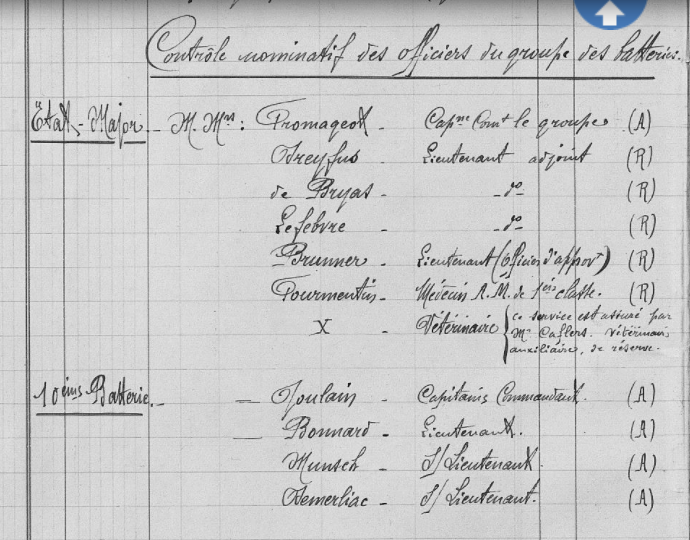 Contrôle nominatif des officiers du groupe des batteries.
État-Major. - M. Mrs: Fromageot - Capne Comt le groupe. (A)
Dreyfus - Lieutenant adjoint (R)
de Bryas - - do - (R)
Lefebvre - - do - (R)
Brunner - Lieutenant (Officier d'approvt) (R)
Fourmentin - Médecin A.M. de 1ère classe. (R)
X - Vétérinaire { ce service est assuré par
Mr Vétérinaire
auxiliaire, de réserve.
10ème Batterie. - - Joulain - Capitaine Commandant. (A)
- Bonnard - Lieutenant. (A)
Munsch - S/Lieutenant. (A)
- S/Lieutenant. (A)